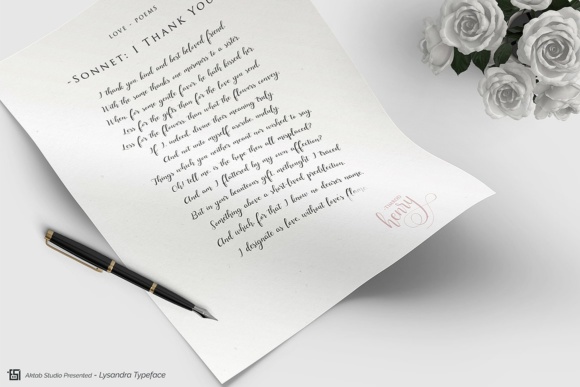 LOVE - POEMS
-SONNET: I THANK YOU
I thank you, kind and best beloved friend,
With the same thanks one murmurs to a sister,
When, for some gentle favor, he hath kissed her,
Less for the gifts than for the love you send,
Less for the flowers, than what the flowers convey;
If I, indeed, divine their meaning truly,
And not unto myself ascribe, unduly,
Things which you neither meant nor wished to say,
Oh! tell me, is the hope then all misplaced?
And am I flattered by my own affection?
But in your beauteous gift, methought I traced
Something above a short-lived predilection,
And which, for that I know no dearer name,
I designate as love, without love's flame.
henry
Aktab Studio Presented - Lysandra Typeface